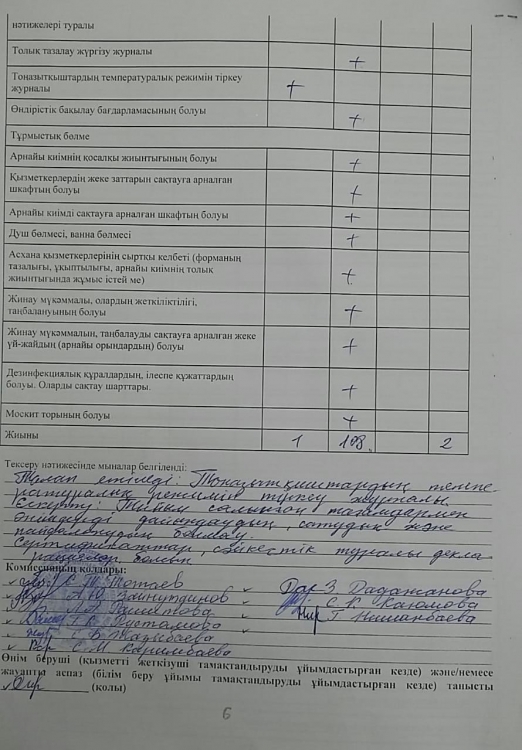 нәтижелері туралы
Толық тазалау жүргізу журналы +
Тоңазытқыштардың температуралық режимін тіркеу + журналы
Өндірістік бақылау бағдарламасының болуы +
Тұрмыстық бөлме
Арнайы киімнің қосалқы жиынтығының болуы +
Қызметкерлердің жеке заттарын сақтауға арналған
шкафтың болуы +
Арнайы киімді сақтауға арналған шкафтың болуы +
Душ бөлмесі, ванна бөлмесі +
Асхана қызметкерлерінің сыртқы келбеті (форманың
тазалығы, ұқыптылығы, арнайы киімнің толық +
жиынтығында жұмыс істей ме)
Жинау мүкәммалы, олардың жеткіліктілігі,
таңбалануының болуы +
Жинау мүкәммалын, таңбалауды сақтауға арналған жеке
үй-жайдың (арнайы орындардың) болуы +
Дезинфекциялық құралдардың, ілеспе құжаттардың
болуы. Оларды сақтау шарттары. +
Москит торының болуы +
Жиыны 1 108 2
Тексеру нәтижесінде мыналар белгіленді:
Талап етіледі: Тоңазытқыштардың темпе-
ратуралық режимін тіркеу журналы
Ескерту: Тыйым салынған тағамдармен
өнімдерді дайындаудың, сатудың және
пайдаланудың болмау.
Сертификаттар, сәйкестік туралы декла
рациялар болып
Комиссияның қолдары:
Дадажанова
А Ю Зайнутдинов С. К. Каюмова
Л Т. Нишанбаева
Т К Рустамова
С. М Каримбаева
Өнім беруші (қызметті жеткізуші тамақтандыруды ұйымдастырған кезде) және/немесе
жауапты аспаз (білім беру ұйымы тамақтандыруды ұйымдастырған кезде) танысты
(қолы)
6